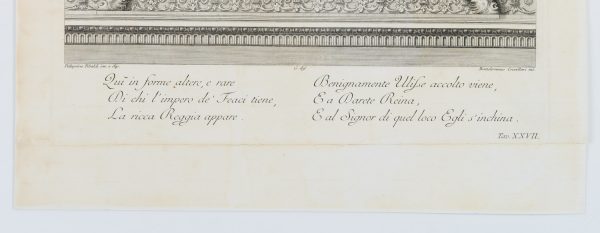 Pellegrino Tibaldi inv. e dip.
Bartolommeo Crivellari inc.
Quì in forme altere, e rare
Di chi l'impero de' Feaci tiene,
La ricca Reggia appare.
Benignamente Ulisse accolto viene,
E a Darete Reina,
E al Signor di quel loco Egli s'inchina.
Tav. XXVII.